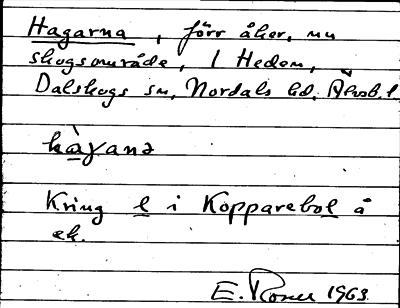 Hagarna, förr åker, nu
skogsområde, i Hedem,
Dalskogs sn, Nordals hd, Älvsb. l.
hàɣanə
Kring l i Kopparebol å
ek.
E. Rosn 1963.